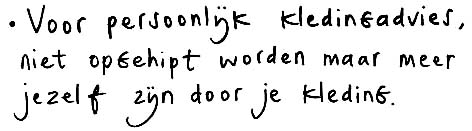 • Voor persoonlijk kledingadvies,
niet opgehipt worden maar meer
jezelf zijn door je kleding.